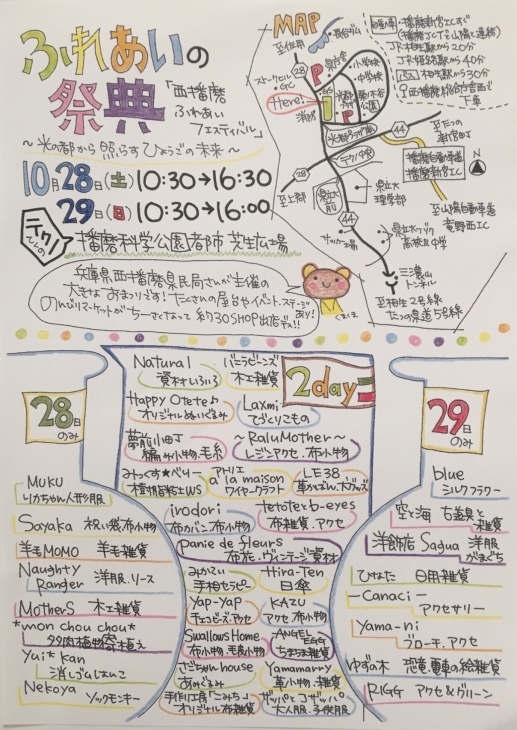 ふれあいの
祭典
「西播磨
ふれあい
フェスティバル」
～光の都から照らすひょうごの未来～
10月28日(土)10:30→16:30
29日(日)10:30→16:00
テクノ
播磨科学公園都市 芝生広場
兵庫県西播磨県民局さんが主催の
大きなおまつりです!たくさんの屋台やイベント、ステージあり!
のんびりマーケットがちーさくなって約30SHOP出店デス!!
くまくま
MAP
至佐用
28
テクノ中央
Here!
P
P
小学校
中学校
消防
44
44
28
至上郡
県立大
理学部
サッカー場
高校&中学
三濃山
トンネル
至相生2号線
たつの県道5号線
至山陽自動車道
竜野西IC
播磨自動車道
播磨新宮IC
至たつの
新宮町
N
・播磨新宮ICすぐ
(播磨JCTで山陽と連結)
JR相生駅から20分
JR姫路駅から40分
バス 相生駅から30分
下車
2day
Natural
資材いろいろ
バーラビーンズ
木工雑貨
Happy Otete♪
オリジナルぬいぐるみ
Laxmi
てづくりこもの
夢前小町
編み小物、毛糸
～RaluMother～
レジンアクセ、布小物
みっくす*べりー
樹脂粘土WS
アトリエ
a' la maison
ワイヤークラフト
LE38
革かばん、犬グッズ
inodori
布カバン布小物
tetoteとb-eyes
布雑貨、アクセ
panie de fleurs
布花・ヴィンテージ資材
みかづい
手相セラピー
Hira-Ten
日傘
Yap-Yap
チェコビーズ・アクセ
KAZU
アクセ 布小物
Swallows Home
布小物・毛糸小物
ANGEL
EGG
ちまちま雑貨
さだちゃんhouse
あみぐるみ
Yamamarry
革小物、雑貨
手作り工房「こみち」
オリジナル布雑貨
ザッパとコザッパ
大人服、子供服
28日
のみ
MUKU
リカちゃん人形服
Sayaka 祝い袋布小物
羊毛MOMO 羊毛雑貨
Naughty
Ranger 洋服、リース
MotherS 木工雑貨
*mon chou chou*
多肉植物寄植え
Yui*Kan
消しゴムはんこ
Nekoya ソックモンキー
29日
のみ
blue
シルクフラワー
空と海 古道具と
雑貨
洋飾店Sagua 洋服
がまぐち
ひなた 日用雑貨
-Canaci-
アクセサリー
Yama-ni
ブローチ、アクセ
ゆずの木 恐竜、電車の絵雑貨
RIGG アクセ&グリーン